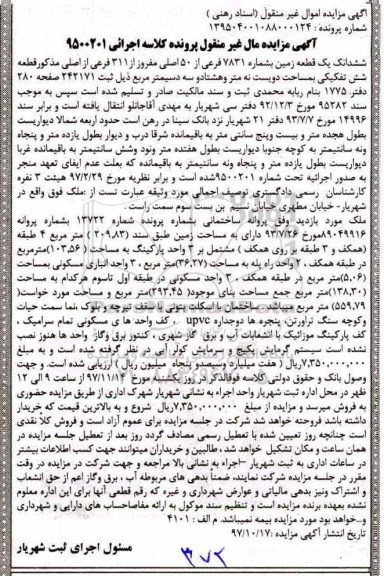 آگهی مزایده اموال غیر منقول (اسناد رهنی)
شماره پرونده : ۱۳۹۵۰۴۰۰۱۰۸۸۰۰۰۱۲۴
آگهی مزایده مال غیر منقول پرونده کلاسه اجرائی ۹۵۰۰۲۰۱
ششدانگ یک قطعه زمین بشماره ۷۸۳۱ فرعی از ۵۰ اصلی مفروز از ۳۱۱ فرعی از اصلی مذکور قطعه
شش تفکیکی بمساحت دویست نه متر وهشتادو سه دسیمتر مربع ذیل ثبت ۲۴۲۱۷۱ صفحه ۲۸۰
دفتر ۱۷۷۵ بنام ربابه محمدی ثبت و سند مالکیت صادر و تسلیم شده است سپس به موجب
سند ۹۵۲۸۲ مورخ ۹۲/۱۲/۳ دفتر سی شهریار به مهدی آقاجانلو انتقال یافته است و برابر سند
۱۴۹۹۶ مورخ ۹۳/۷/۷ دفتر ۲۱ شهریار نزد بانک سینا در رهن است حدود اربعه شمالا دیواریست
بطول هجده متر و بیست وپنج سانتی متر به باقیمانده شرقا درب و دیوار بطول یازده متر و پنجاه
ونه سانتیمتر به کوچه جنوبا دیواریست بطول هفتده متر ونود وشش سانتیمتر به باقیمانده غربا
دیواریست بطول یازده متر و پنجاه ونه سانتیمتر به باقیمانده که بعلت عدم ایفای تعهد منجر
به صدور اجرائیه تحت شماره ۹۵۰۰۲۰۱ شده است و برابر نظریه مورخ ۹۷/۲/۲۹ هیئت ۳ نفره
کارشناسان رسمی دادگستری توصیف اجمالی مورد وثیقه عبارت است از :ملک فوق واقع در
شهریار- خیابان مطهری خیابان نسیم بن بست سوم سمت راست .
ملک مورد بازدید وفق پروانه ساختمانی بشماره پرونده شماره ۱۳۷۲۲ بشماره پروانه
۸۹۰۴۹۹۱۶ مورخ ۹۳/۷/۲۶ دارای به مساحت زمین طبق سند (۲۰۹,۸۳) متر مربع ۴ طبقه
(همکف و ۳ طبقه بر روی همکف) مشتمل بر ۳ واحد پارکینگ به مساحت (۱۰۳,۵۶) مترمربع
در طبقه همکف ، ۲ واحد راه پله به مساحت (۳۶,۲۷) متر مربع ، ۳ واحد انباری مسکونی بمساحت
(۵,۰۶) متر مربع در طبقه همکف ، ۳ واحد مسکونی در طبقه اول تاسوم هرکدام به مساحت
(۱۳۸,۳۰) متر مربع جمع مساحت بنای موجود( ۲۹۲,۴۵) متر مربع و مساحت مورد خواست(
۵۵۹,۷۹) متر مربع میباشد. ساختمان با اسکلت بتونی با سقف تیرچه و بلوک ،نما سمت حیات
وکوچه سنگ تراورتن، پنجره ها دوجداره upvc ، کف واحد ها ی مسکونی تمام سرامیک ،
کف پارکینگ موزائیک با انشعابات آب و برق گاز شهری ، کنتور برق وگاز واحد ها هنوز نصب
نشده است سیستم گرمایش پکیج و سرمایش کولر آبی در نظر گرفته شده است و به مبلغ
۷,۳۵۰,۰۰۰,۰۰۰ ریال ( هفت میلیارد وسیصدو پنجاه میلیون ریال) ارزیابی شده است. و جهت
وصول بانک و حقوق دولتی کلاسه فوالذکر در روز یکشنبه مورخ ۹۷/۱۱/۱۴ از ساعت ۹ الی ۱۲
ظهر در محل اداره ثبت شهریار واحد اجراء به نشانی شهریار شهرک اداری از طریق مزایده حضوری
به فروش میرسد و مزایده از مبلغ ۷,۳۵۰,۰۰۰,۰۰۰ریال شروع و به بالاترین قیمت که خریدار
داشته باشد فروخته خواهد شد شرکت در جلسه مزایده برای عموم آزاد است و فروش کلا نقدی
است چنانچه روز تعیین شده با تعطیل رسمی مصادف گردد روز بعد از تعطیل جلسه مزایده در
همان ساعت و مکان تشکیل خواهد شد ، طالبین و خریداران میتوانند جهت کسب اطلاعات بیشتر
در ساعات اداری به ثبت شهریار –اجراء به نشانی بالا مراجعه و جهت شرکت در مزایده در وقت
مقرر در جلسه مزایده شرکت نمایند، ضمناً بدهی های مربوطه آب ، برق وگاز اعم از حق انشعاب
و اشتراک ونیز بدهی مالیاتی و عوارض شهرداری و غیره که رقم قطعی آنها برای این اداره معلوم
نشده بعهده برنده مزایده است و تنظیم سند موکول به ارائه مفاصاحساب های دارایی و شهرداری
و...خواهد بود مورد مزایده بیمه نمیباشد. م الف : ۴۱۰۱
تاریخ انتشار آگهی مزایده :۹۷/۱۰/۱۷
مسئول اجرای ثبت شهریار
۳۷۲